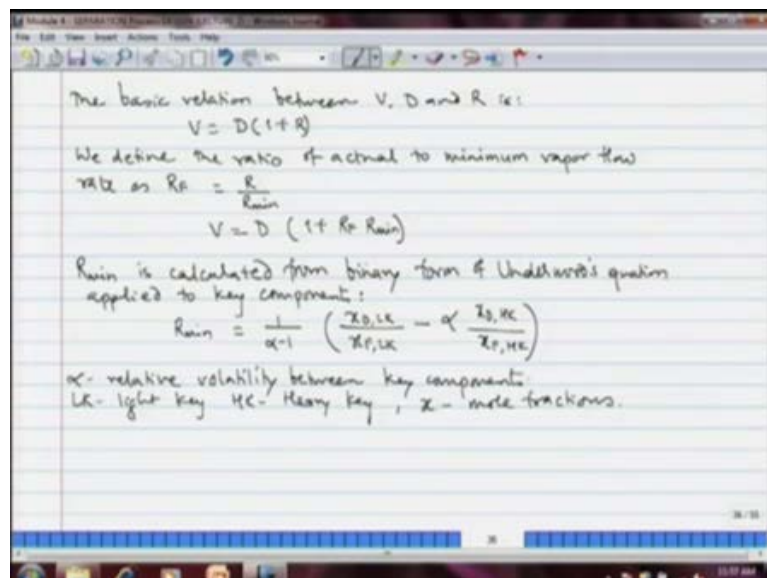 Module 4 - SEPARATION Process DESIGN (LECTURE 2) - Windows Journal
File Edit View Insert Actions Tools Help
The basic relation between V, D and R is:
V = D(1+R)
We define the ratio of actual to minimum vapor flow
rate as R_F = R / R_min
V = D (1 + R_F R_min)
R_min is calculated from binary form of Underwood's
applied to key component:
R_min = 1/(α-1) (x_D,LK / x_F,LK - α x_D,HK / x_F,HK)
α - relative volatility between key components
LK - light key HK - Heavy key, x - mole fractions.
36
11:57 AM